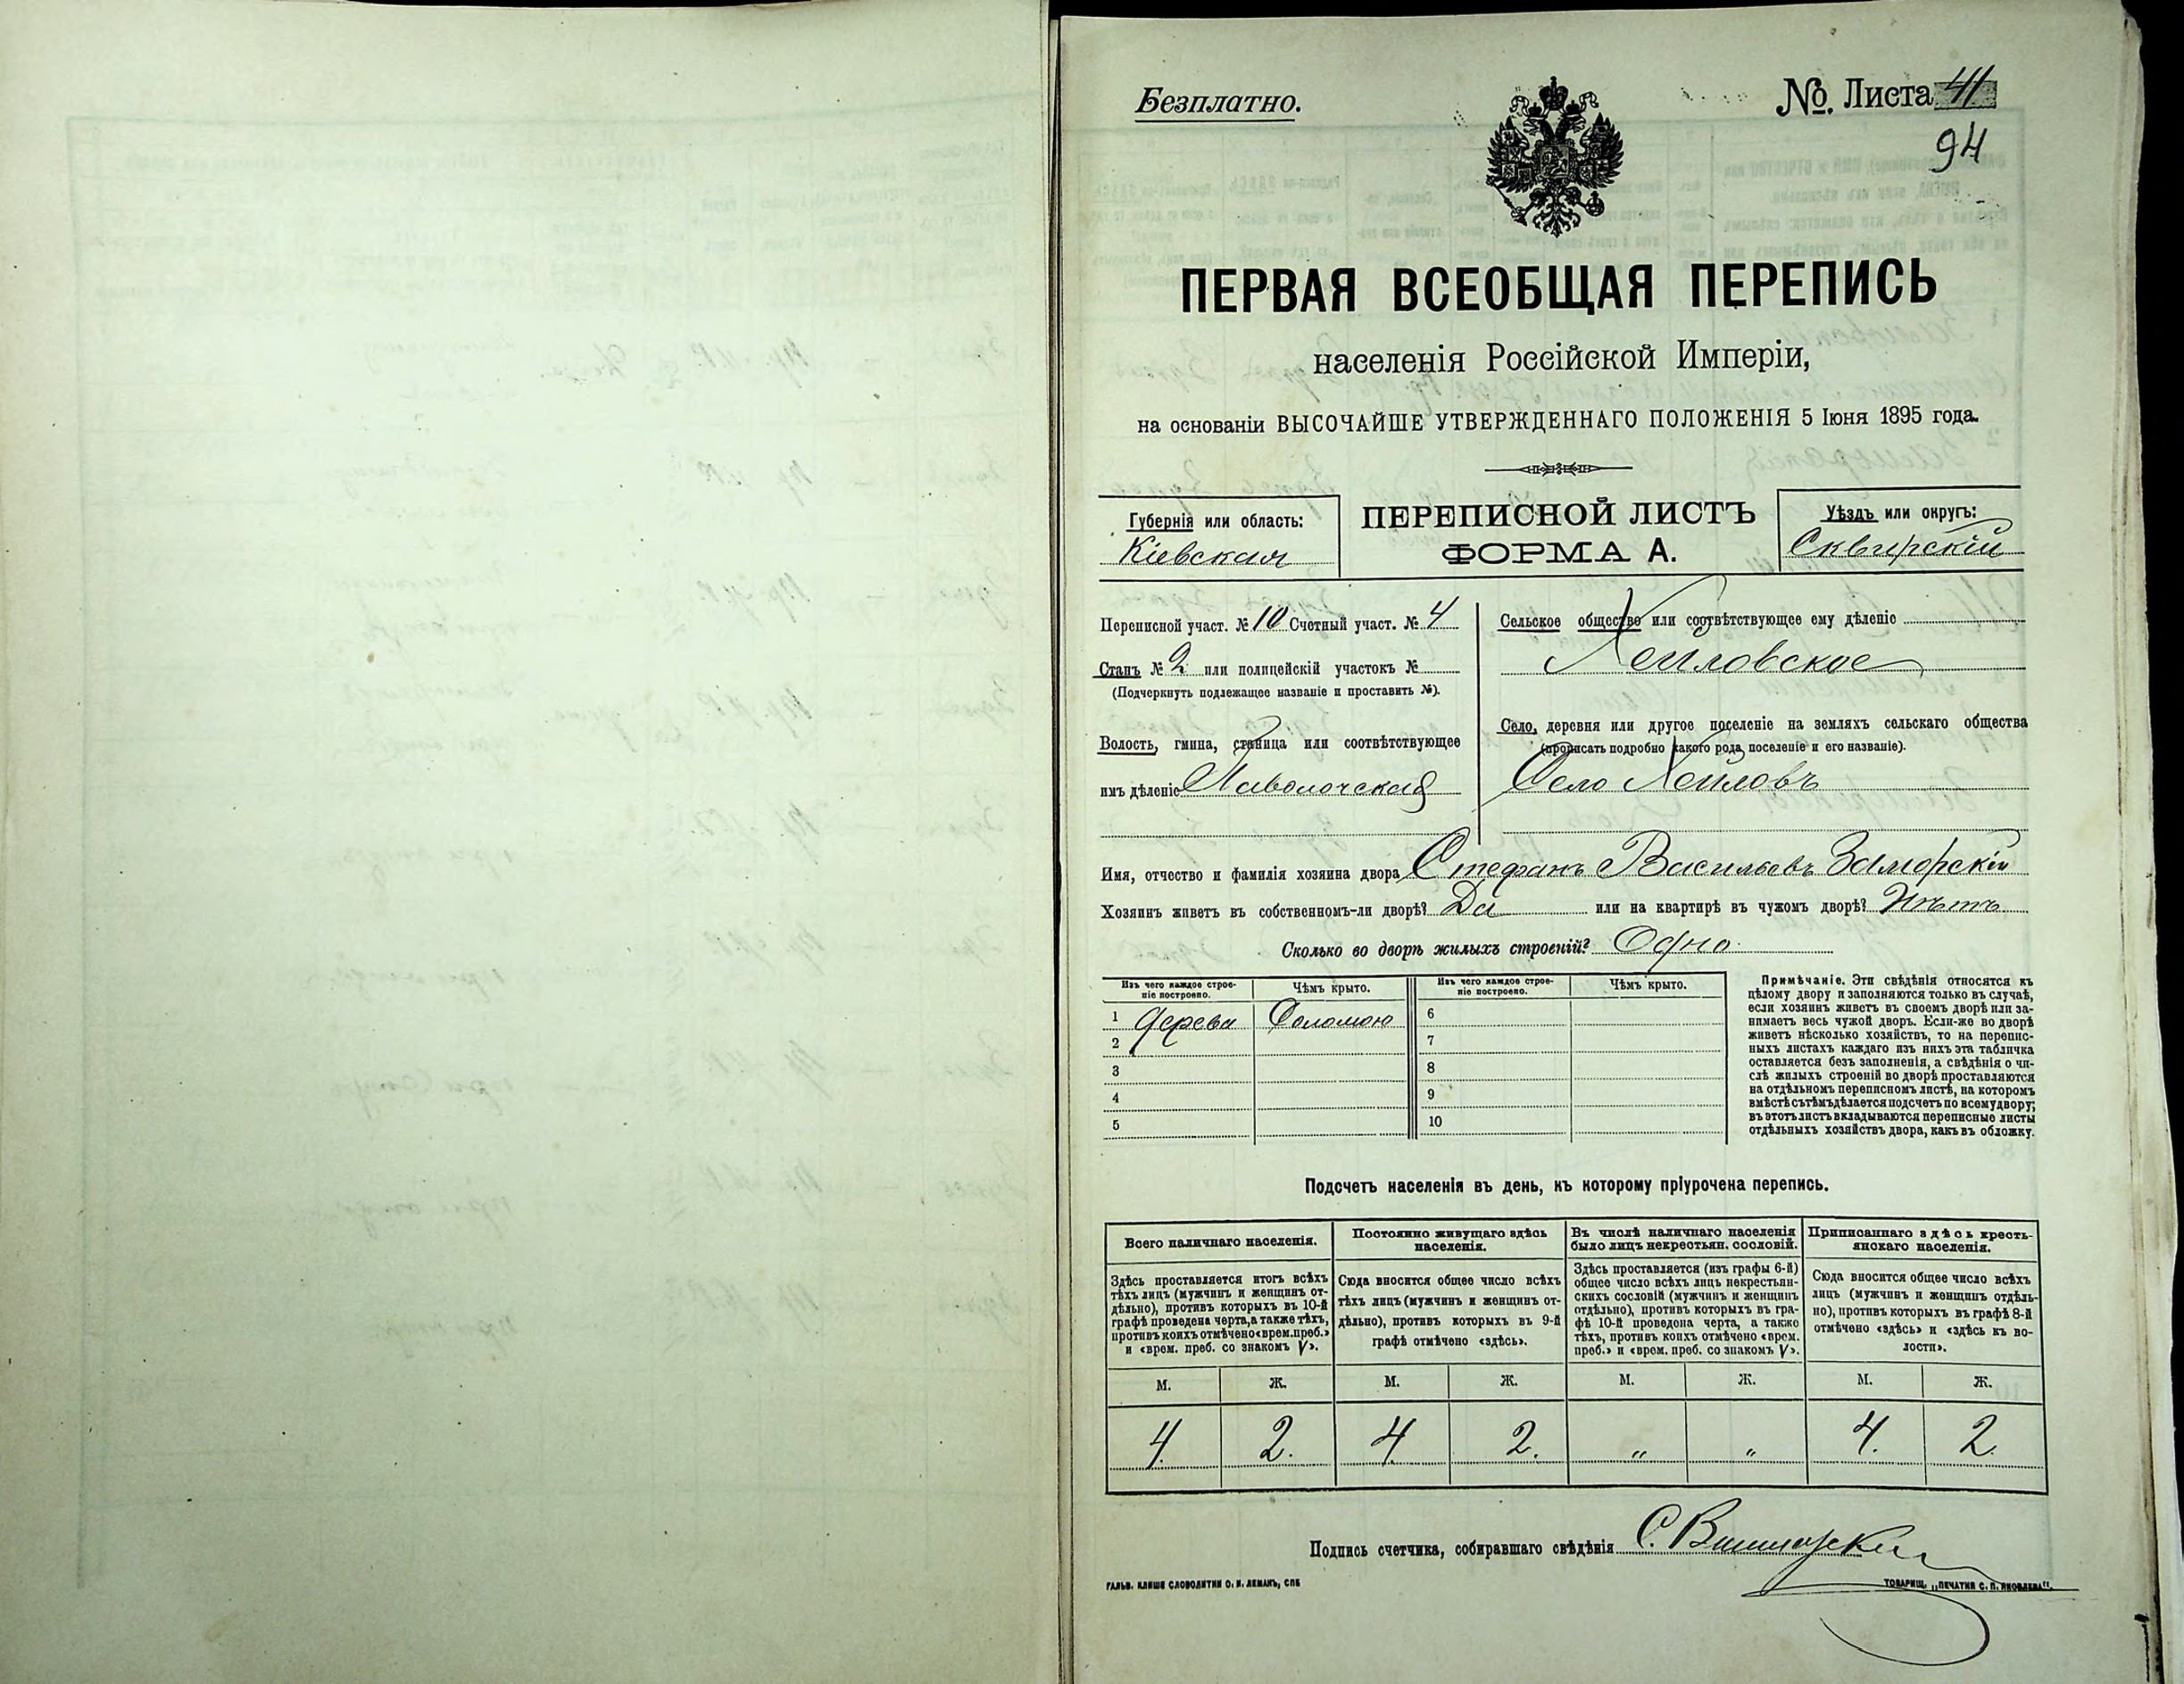 Безплатно.
№. Листа 41
94
ПЕРВАЯ ВСЕОБЩАЯ ПЕРЕПИСЬ
населенія Россійской Имперіи,
на основаніи ВЫСОЧАЙШЕ УТВЕРЖДЕННАГО ПОЛОЖЕНІЯ 5 Іюня 1895 года.
Губернія или область:
Кіевская
ПЕРЕПИСНОЙ ЛИСТЪ
ФОРМА А.
Уѣздъ или округъ:
Сквирскій
Переписной участ. № 10 Счетный участ. № 4
Станъ № 2 или полицейскій участокъ №
(Подчеркнуть подлежащее названіе и проставить №).
Волость, гмина, станица или соотвѣтствующее
имъ дѣленіе Паволочская
Сельское общество или соотвѣтствующее ему дѣленіе
Сельское
Село, деревня или другое поселеніе на земляхъ сельскаго общества
(прописать подробно какого рода поселеніе и его названіе).
Село
Имя, отчество и фамилія хозяина двора Стефанъ Васильевъ Заморскій
Хозяинъ живетъ въ собственномъ-ли дворѣ? Да или на квартирѣ въ чужомъ дворѣ? Нѣтъ
Сколько во дворѣ жилыхъ строеній? Одно
Изъ чего каждое строеніе построено.
Чѣмъ крыто.
Изъ чего каждое строеніе построено.
Чѣмъ крыто.
1 Дерева Соломою 6
2 7
3 8
4 9
5 10
Примѣчаніе. Эти свѣдѣнія относятся къ
цѣлому двору и заполняются только въ случаѣ,
если хозяинъ живетъ въ своемъ дворѣ или за-
нимаетъ весь чужой дворъ. Если-же во дворѣ
живетъ нѣсколько хозяйствъ, то на перепис-
ныхъ листахъ каждаго изъ нихъ эта табличка
оставляется безъ заполненія, а свѣдѣнія о чи-
слѣ жилыхъ строеній во дворѣ проставляются
на отдѣльномъ переписномъ листѣ, на которомъ
вмѣстѣ съ тѣмъ дѣлается подсчетъ по всему двору;
въ этотъ листъ вкладываются переписные листы
отдѣльныхъ хозяйствъ двора, какъ въ обложку.
Подсчетъ населенія въ день, къ которому пріурочена перепись.
Всего наличнаго населенія.
Здѣсь проставляется итогъ всѣхъ
тѣхъ лицъ (мужчинъ и женщинъ от-
дѣльно), противъ которыхъ въ 10-й
графѣ проведена черта, а также тѣхъ,
противъ коихъ отмѣчено «врем. преб.»
и «врем. преб. со знакомъ V».
Постоянно живущаго здѣсь
населенія.
Сюда вносится общее число всѣхъ
тѣхъ лицъ (мужчинъ и женщинъ от-
дѣльно), противъ которыхъ въ 9-й
графѣ отмѣчено «здѣсь».
Въ числѣ наличнаго населенія
было лицъ некрестьян. сословій.
Здѣсь проставляется (изъ графы 6-й)
общее число всѣхъ лицъ некрестьян-
скихъ сословій (мужчинъ и женщинъ
отдѣльно), противъ которыхъ въ гра-
фѣ 10-й проведена черта, а также
тѣхъ, противъ коихъ отмѣчено «врем.
преб.» и «врем. преб. со знакомъ V».
Приписаннаго здѣсь кресть-
янскаго населенія.
Сюда вносится общее число всѣхъ
лицъ (мужчинъ и женщинъ отдѣль-
но), противъ которыхъ въ графѣ 8-й
отмѣчено «здѣсь» и «здѣсь къ во-
лости».
М. Ж. М. Ж. М. Ж. М. Ж.
4. 2. 4 2. „ „ 4. 2.
Подпись счетчика, собиравшаго свѣдѣнія С.
ГАЛЬВ. КЛИШЕ СЛОВОЛИТНИ О. И. ЛЕМАНЪ, СПБ
ТОВАРИЩ. „ПЕЧАТНЯ С. П. ЯКОВЛЕВА".